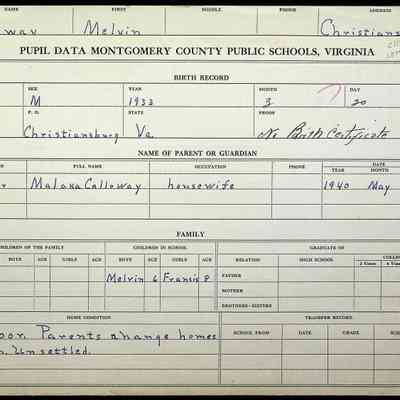 NAME FIRST SCHOOL PHONE ADDRESS
way Melvin Christians
PUPIL DATA MONTGOMERY COUNTY PUBLIC SCHOOLS, VIRGINIA
BIRTH RECORD
SEX YEAR MONTH DAY
M 1933 3 20
P. O. STATE PROOF
Christiansburg Va. No Birth Certificate
NAME OF PARENT OR GUARDIAN
FULL NAME OCCUPATION PHONE DATE
YEAR MONTH
r Malaxa Calloway housewife 1940 May
FAMILY
CHILDREN OF THE FAMILY CHILDREN IN SCHOOL GRADUATE OF
BOYS AGE GIRLS AGE BOYS AGE GIRLS AGE RELATION HIGH SCHOOL COLL
2 Years 4 Y
Melvin 6 Francis 8 FATHER
MOTHER
BROTHERS-SISTERS
HOME CONDITION TRANSFER RECORD
oor. Parents change homes SCHOOL FROM DATE GRADE SCH
n. Unsettled.